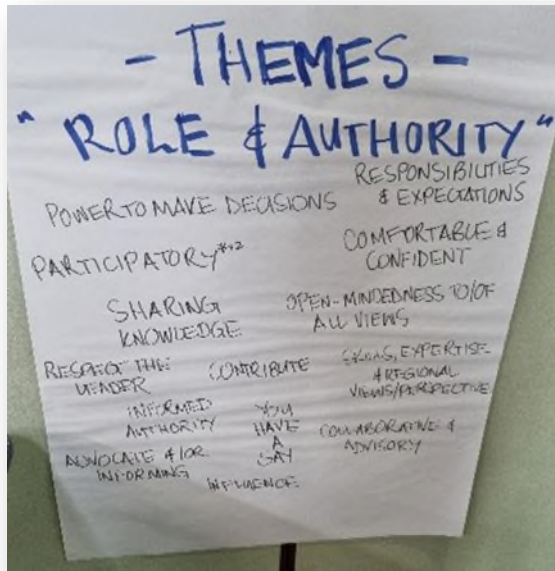 - THEMES -
"ROLE & AUTHORITY"
RESPONSIBILITIES
& EXPECTATIONS
POWER TO MAKE DECISIONS
COMFORTABLE &
CONFIDENT
PARTICIPATORY
SHARING
KNOWLEDGE
OPEN-MINDEDNESS TO/OF
ALL VIEWS
RESPECT OF THE
LEADER
CONTRIBUTE
SKILLS, EXPERTISE
& REGIONAL
VIEWS/PERSPECTIVE
INFORMED
AUTHORITY
YOU
HAVE
A
SAY
COLLABORATIVE &
ADVISORY
ADVOCATE &/OR
INFORMING
INFLUENCE